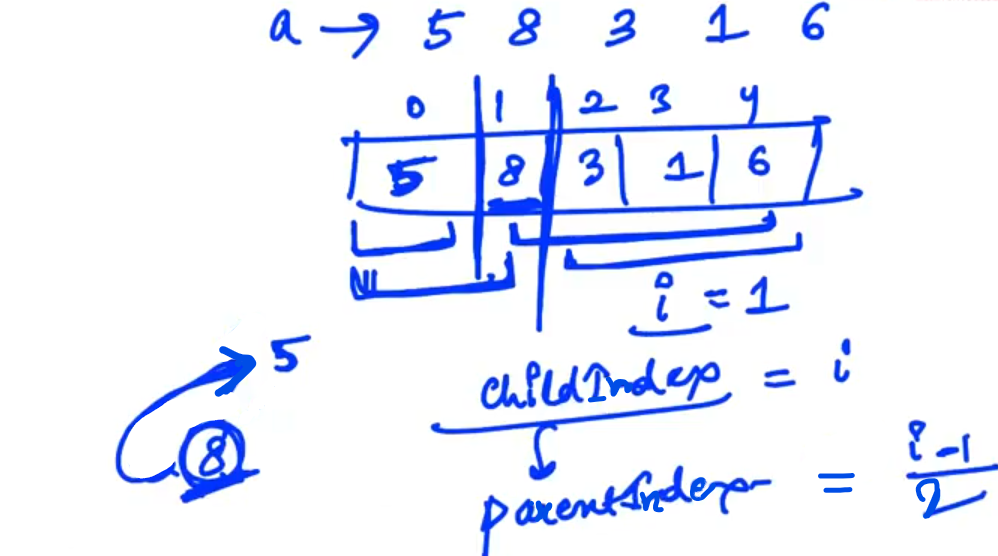 a → 5 8 3 1 6
0 1 2 3 4
5 8 3 1 6
i = 1
5
childIndex = i
8
parentIndex = i-1
2